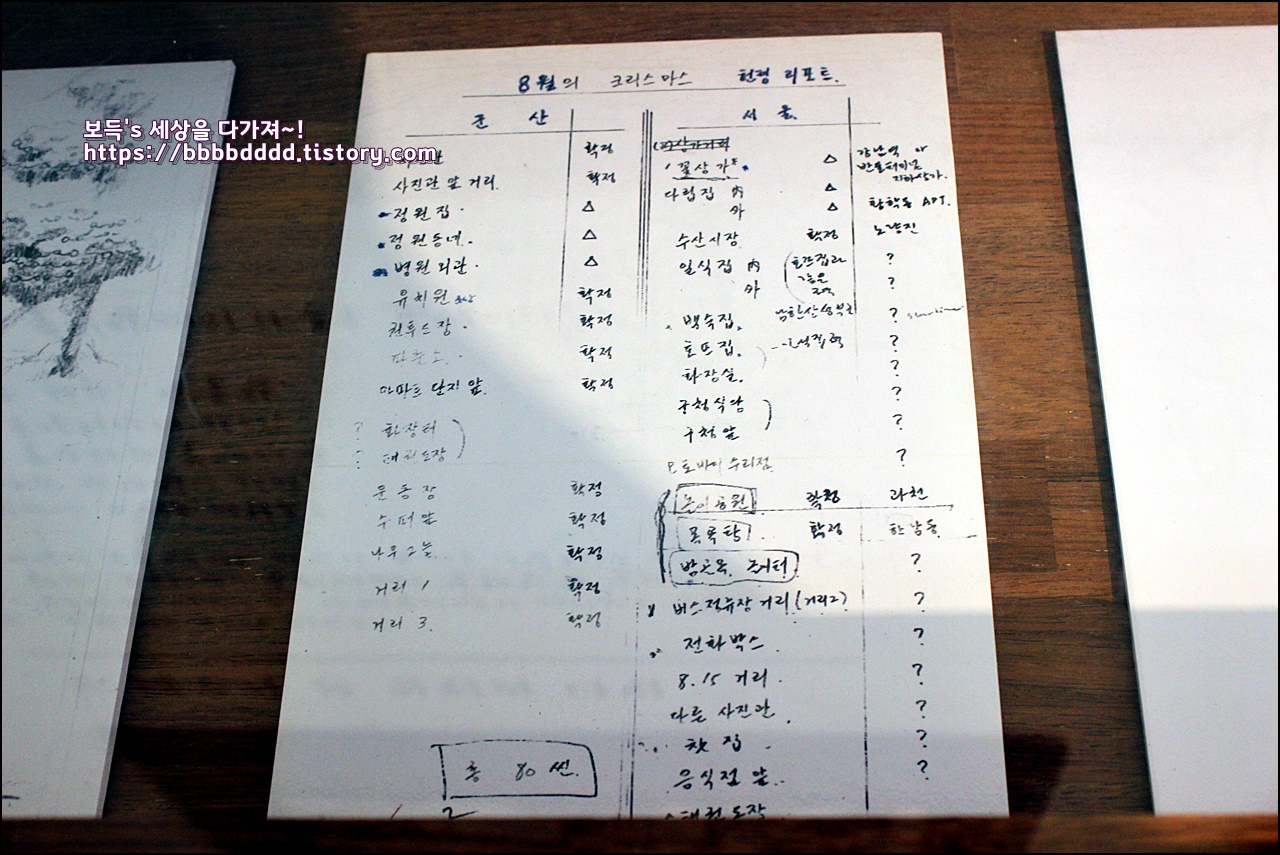 보득's 세상을 다가져~!
https://bbbbdddd.tistory.com
8월의 크리스마스 헌팅 리포트.
군 산
확정
사진관 앞 거리. 확정
정원집 · △
정원동네 · △
병원 외관 · △
유치원 확정
권투도장 · 확정
확정
단지 앞. 확정
? 화장터
? 태권도장
운동장 확정
수퍼앞 확정
나무그늘 확정
거리 1 확정
거리 3. 확정
총 80 씬.
서 울.
꽃상가 △ 강남역 아
반포터미널
지하상가.
다림집 內 △ 황학동 APT.
外 △
수산시장 확정 노량진
일식집 內 ?
外 ?
백숙집. ?
호프집. ?
화장실. ?
구청식당 ?
구청 앞 ?
오토바이 수리점 ?
놀이공원 확정 과천
목욕탕 확정 한남동.
?
버스정류장 거리 (거리2) ?
전화박스 ?
8.15 거리. ?
다른 사진관. ?
찻집 ?
음식점 앞. ?
태권도장